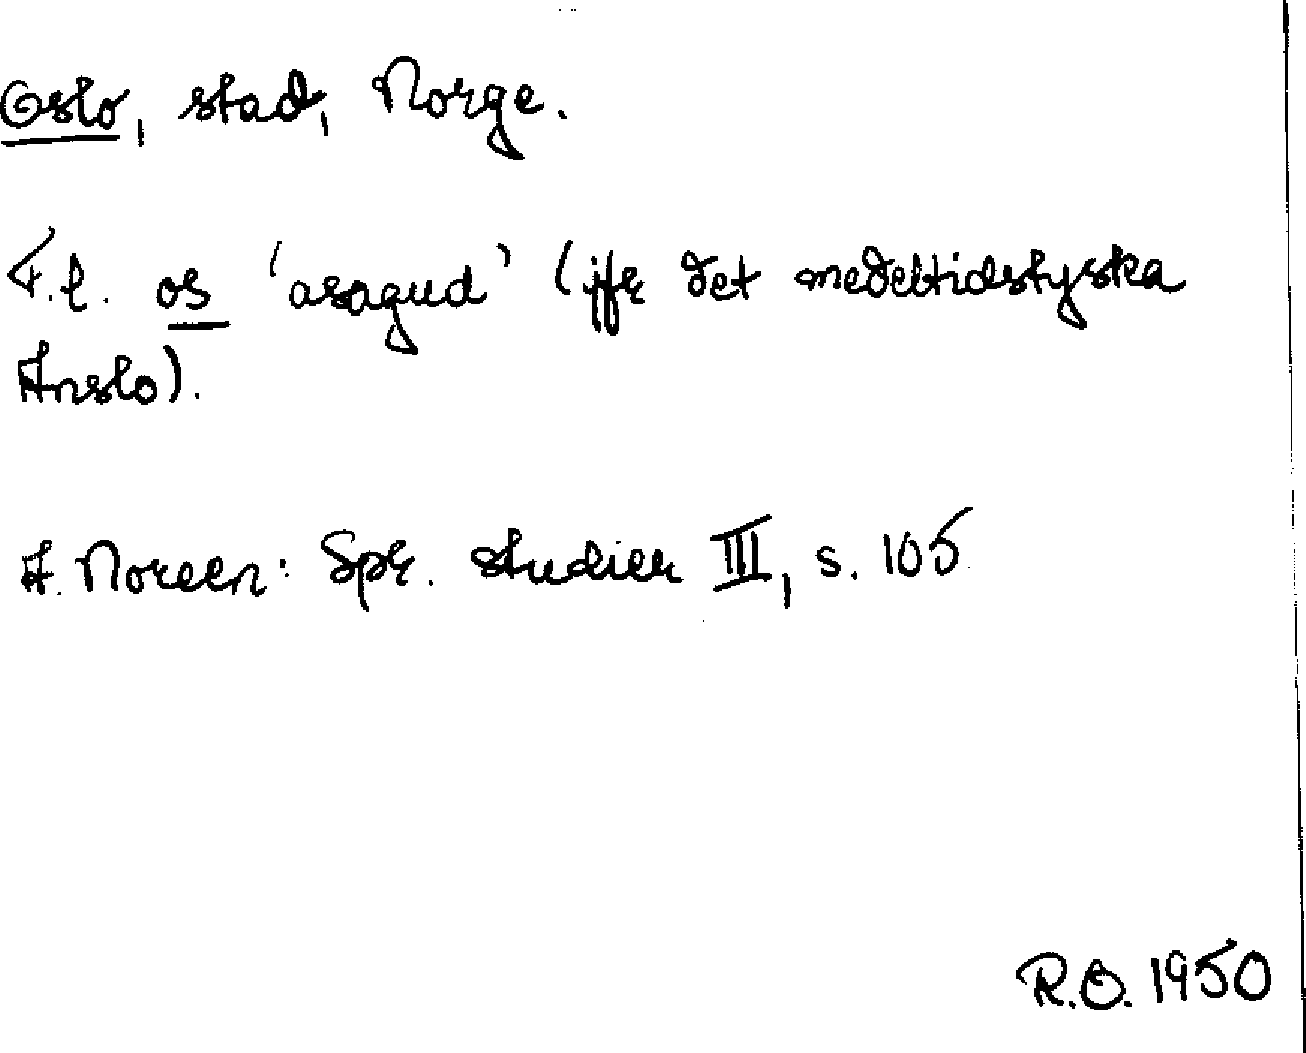 Oslo, stad, Norge.
F.l. os 'asagud' (jfr det medeltidstyska
Anslo).
A. Noreen: Spr. studier III, s. 105
R.O. 1950